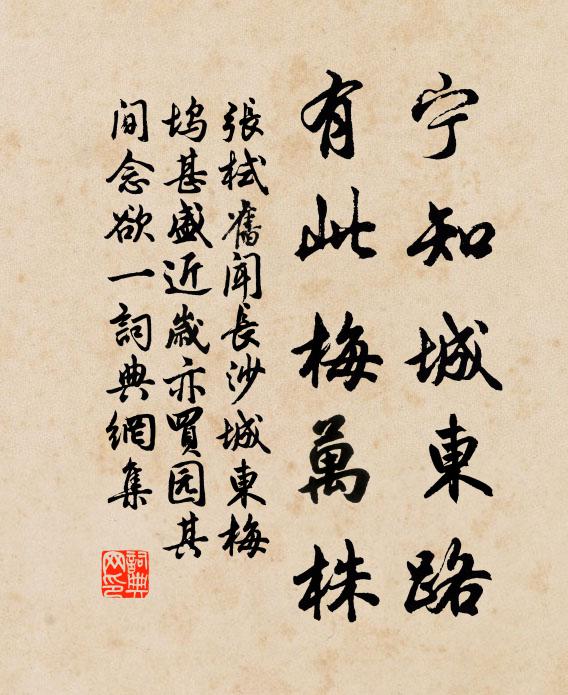 宁知城東路
有此梅萬株
張栻舊聞長沙城東梅
塢甚盛近歲亦買园其
间念欲一詞典網集
詞典网印